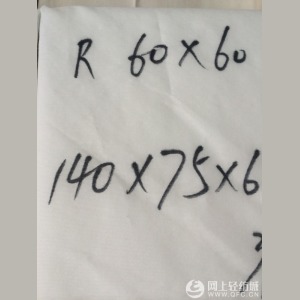 R 60×60
140×75×6
网上轻纺城
WWW.QFC.CN